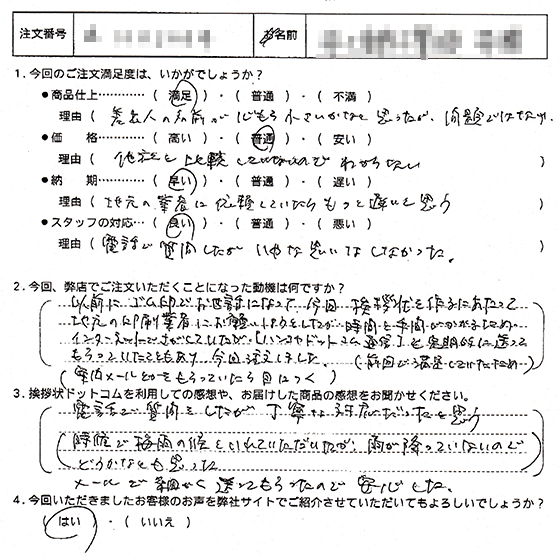 注文番号
お名前
1.今回のご注文満足度は、いかがでしょうか?
●商品仕上…………(満足)・(普通)・(不満)
理由(差出人の名前が少し小さいかなと思ったが、問題ではない
●価 格…………(高い)・(普通)・(安い)
理由(他社と比較していないのでわからない)
●納 期…………(早い)・(普通)・(遅い)
理由(地元の業者に依頼していたらもっと遅いと思う
●スタッフの対応…(良い)・(普通)・(悪い)
理由(電話で質問したがいやな思いはしなかった。)
2.今回、弊店でご注文いただくことになった動機は何ですか?
以前にゴム印でお世話になって、今回挨拶状を作るにあたって
地元の印刷業者にお願いしようとしたが時間と手間がかかるため
インターネットでさがしていたが「ハンコヤドットコム通信」を定期的に送って
もらっていたこともあり今回注文しました。(前回でも満足していたため)
(年賀メールとかをもらっていたら目につく)
3.挨拶状ドットコムを利用しての感想や、お届けした商品の感想をお聞かせください。
電話で質問をしたが丁寧な対応だったと思う
時候で梅雨の候といれていただいたが、雨が降っていないので
どうかなとも思った
メールで細かく送ってもらったので安心した。
4.今回いただきましたお客様のお声を弊社サイトでご紹介させていただいてもよろしいでしょうか?
(はい)・(いいえ)